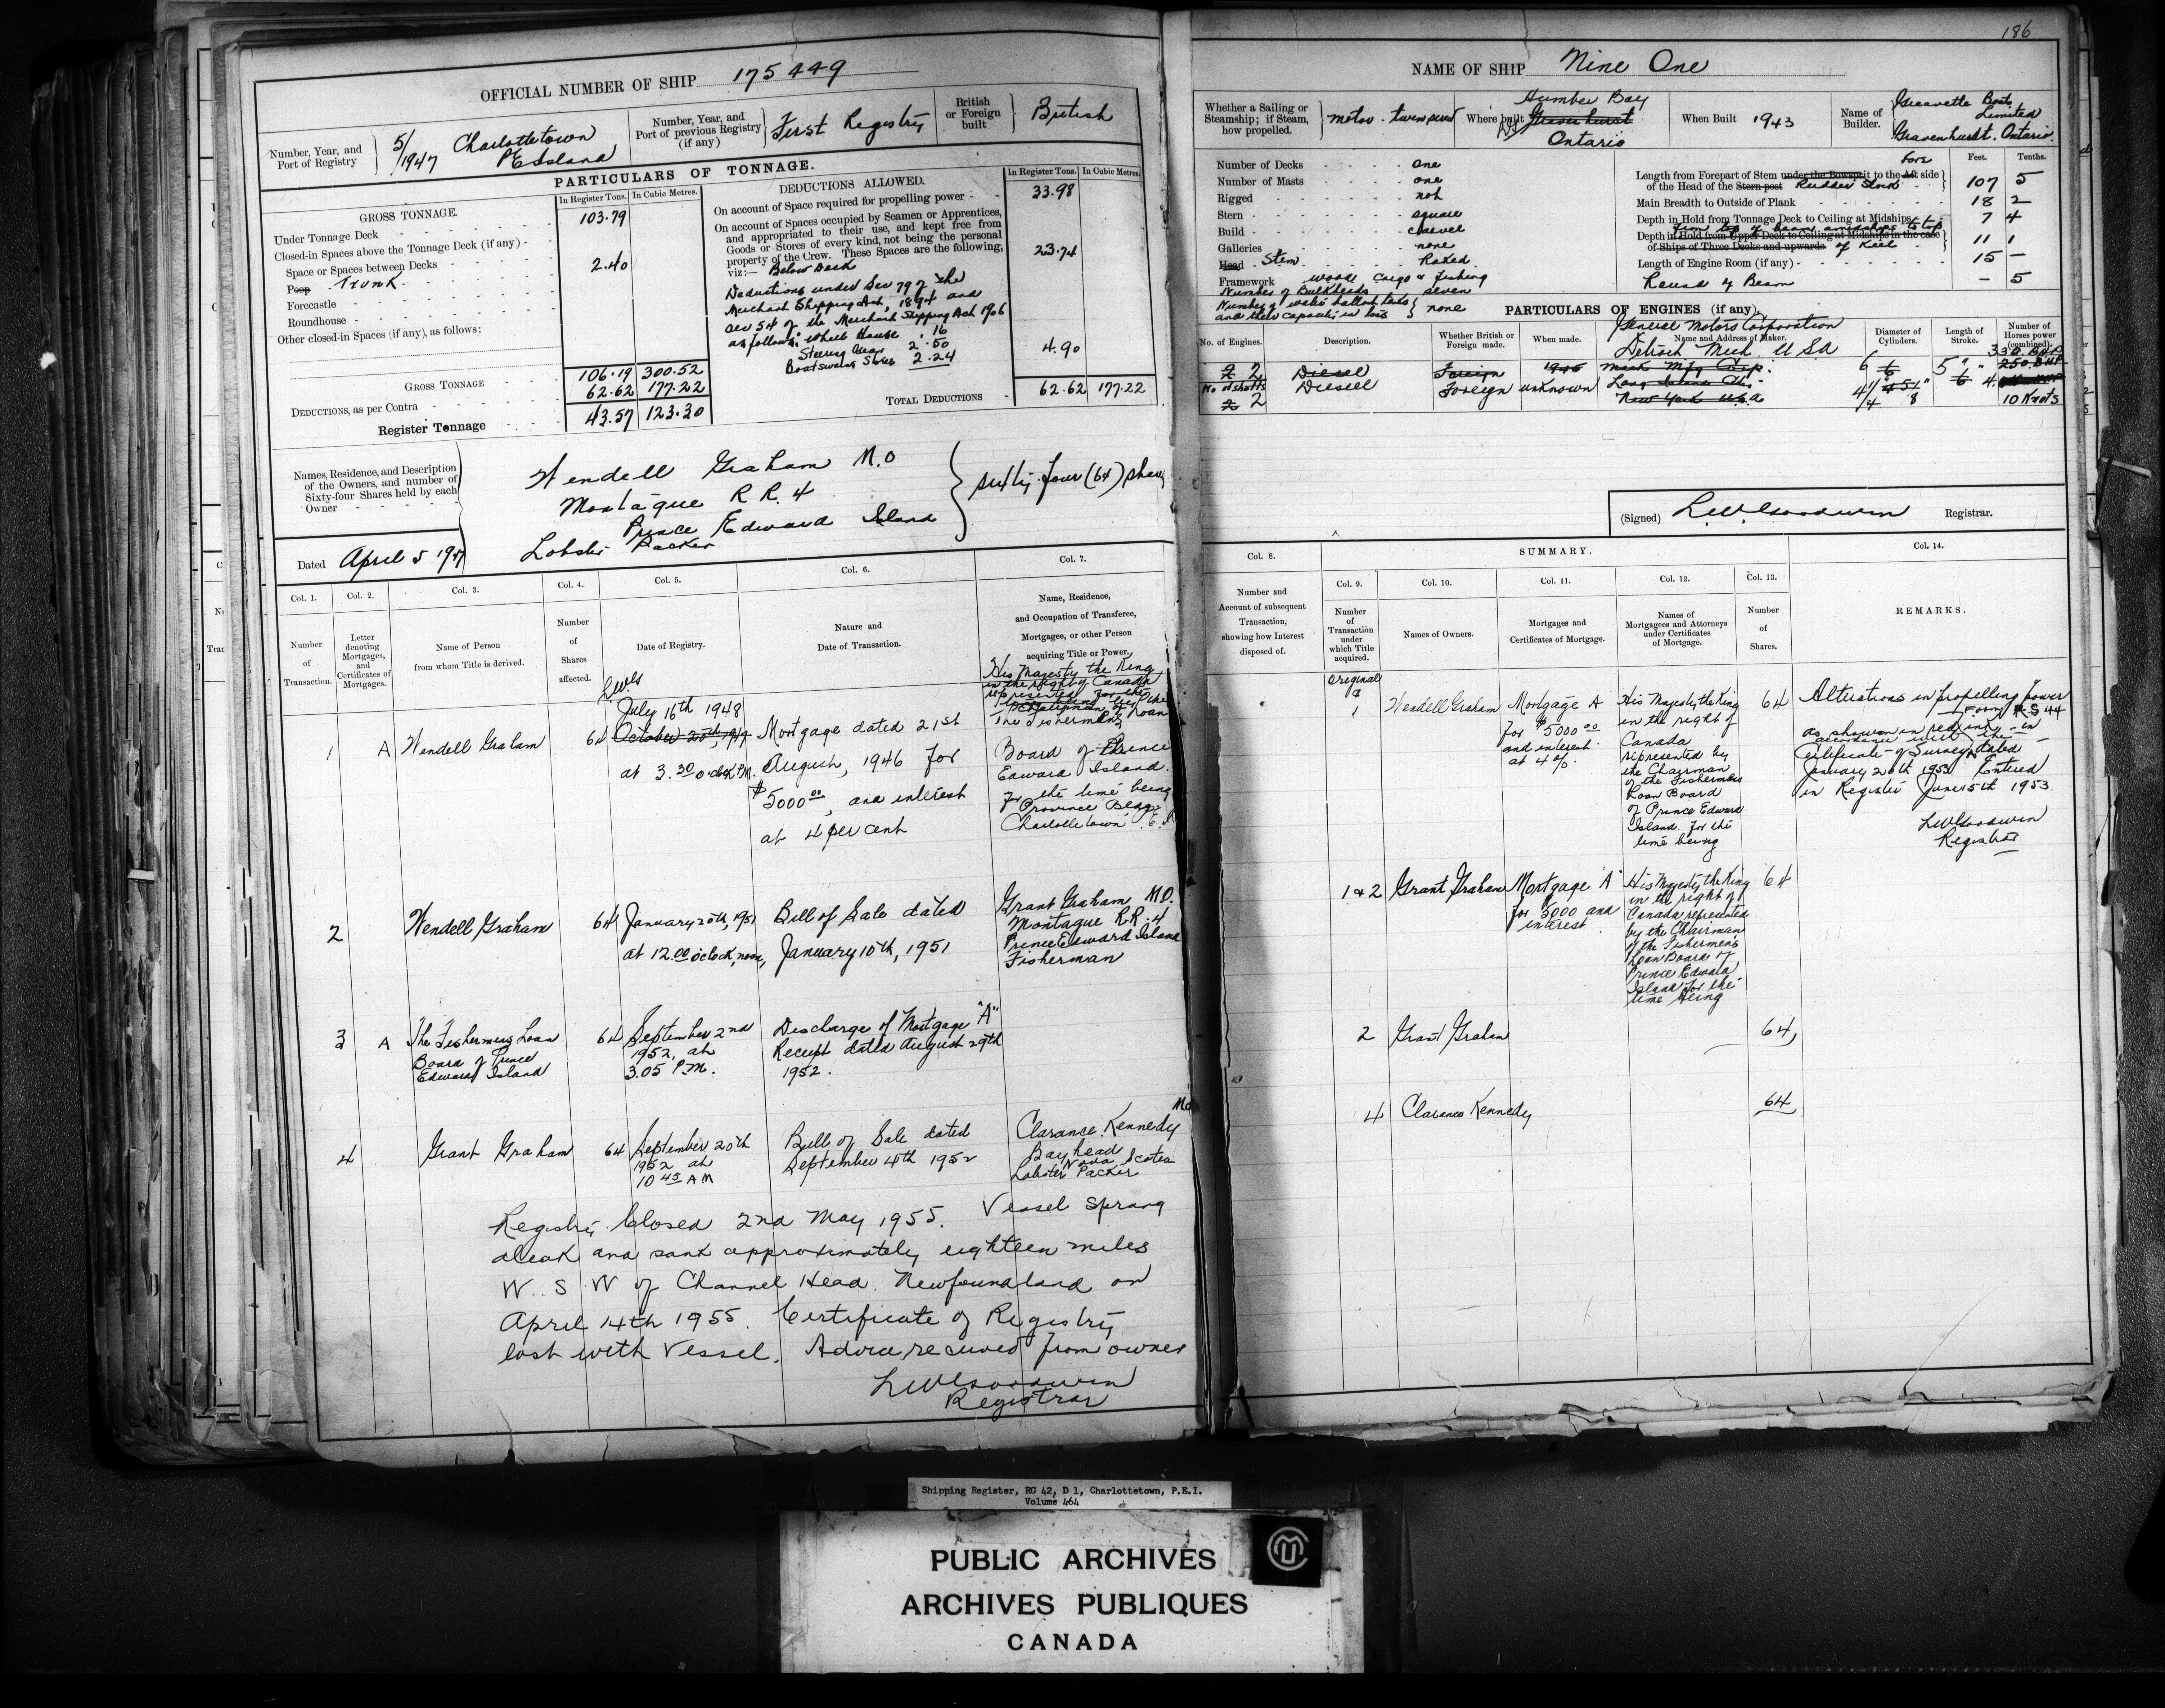 186
OFFICIAL NUMBER OF SHIP 175449
Number, Year, and Port of Registry
5/1947 Charlottetown
P E Island
Number, Year, and Port of previous Registry (if any)
First Registry
British or Foreign built
British
PARTICULARS OF TONNAGE.
GROSS TONNAGE.
In Register Tons. In Cubic Metres.
Under Tonnage Deck 103.79
Closed-in Spaces above the Tonnage Deck (if any)
Space or Spaces between Decks
Poop Trunk 2.40
Forecastle
Roundhouse
Other closed-in Spaces (if any), as follows:
GROSS TONNAGE 106.19 300.52
DEDUCTIONS, as per Contra 62.62 177.22
Register Tonnage 43.57 123.30
DEDUCTIONS ALLOWED.
In Register Tons. In Cubic Metres.
On account of Space required for propelling power 33.98
On account of Spaces occupied by Seamen or Apprentices,
and appropriated to their use, and kept free from
Goods or Stores of every kind, not being the personal
property of the Crew. These Spaces are the following,
viz:— Below Deck 23.74
Deductions under Sec 79 of the
Merchant Shipping Act, 1894 and
Sec 54 of the Merchant Shipping Act 1906
as follows: Wheel House 16
Steering Gear 2.50
Boatswains Stores 2.24
4.90
TOTAL DEDUCTIONS 62.62 177.22
Names, Residence, and Description
of the Owners, and number of
Sixty-four Shares held by each
Owner
Wendell Graham M.O
Montague R R. 4
Prince Edward Island
Lobster Packer
sixty-four (64) shares
Dated April 5 1947
Col. 1. Col. 2. Col. 3. Col. 4. Col. 5. Col. 6. Col. 7.
Number of Transaction.
Letter denoting Mortgages, and Certificates of Mortgages.
Name of Person from whom Title is derived.
Number of Shares affected.
Date of Registry.
Nature and Date of Transaction.
Name, Residence, and Occupation of Transferee, Mortgagee, or other Person acquiring Title or Power.
1 A Wendell Graham 64
July 16th 1948
October 20th, 1947
at 3.30 o'clock P.M.
Mortgage dated 21st
August, 1946 for
$5000.00, and interest
at 4 per cent
His Majesty the King
in the right of Canada
represented for the
Chairman of
The Fishermens Loan
Board of Prince
Edward Island.
for the time being
Province Bldg
Charlottetown
2 Wendell Graham 64
January 20th, 1951
at 12.00 o'clock, noon,
Bill of Sale dated
January 10th, 1951
Grant Graham M.O.
Montague R.R. 4
Prince Edward Island
Fisherman
3 A The Fishermens Loan
Board of Prince
Edward Island
64 September 2nd
1952, at
3.05 P.M.
Discharge of Mortgage "A"
Receipt dated August 29th
1952.
4 Grant Graham 64
September 20th
1952 at
10 45 A M
Bill of Sale dated
September 4th 1952
Clarance Kennedy M.O
Bayhead
Nova Scotia
Lobster Packer
Registry Closed 2nd May 1955. Vessel sprang
aleak and sank approximately eighteen miles
W. S W of Channel Head. Newfoundland on
April 14th 1955. Certificate of Registry
lost with Vessel. Advice received from owner
LWGoodwin
Registrar
NAME OF SHIP Nine One
Whether a Sailing or Steamship; if Steam, how propelled.
motor - twin screw
Where built
Humber Bay
Gravenhurst
Ontario
When Built 1943
Name of Builder.
Greavette Boats
Limited
Gravenhurst. Ontario.
Number of Decks one
Number of Masts one
Rigged not
Stern square
Build carvel
Galleries none
Head Stem Raked
Framework wood Cargo & Fishing
Number of Bulkheads seven
Number of water ballast tanks
and their capacity in tons none
Feet. Tenths.
Length from Forepart of Stem under the Bowsprit to the Aft Fore side
of the Head of the Stern post Rudder Stock 107 5
Main Breadth to Outside of Plank 18 2
Depth in Hold from Tonnage Deck to Ceiling at Midships 7 4
from top of beam amidships to top
Depth in Hold from Upper Deck to Ceiling at Midships in the case
of Ships of Three Decks and upwards of Keel 11 1
Length of Engine Room (if any) 15 —
Round of Beam — 5
PARTICULARS OF ENGINES (if any).
No. of Engines. Description. Whether British or Foreign made. When made. Name and Address of Maker. Diameter of Cylinders. Length of Stroke. Number of Horses power (combined).
General Motors Corporation
Detroit Mich. U S A
2 2 Diesel Foreign 1940 Mack Mfg Corp.
No of shafts Diesel Foreign unknown Long Island City
2 2 New York U.S.A
330 BHP
250 BHP
10 Knots
(Signed) L.W.Goodwin Registrar.
SUMMARY.
Col. 8. Col. 9. Col. 10. Col. 11. Col. 12. Col. 13. Col. 14.
Number and Account of subsequent Transaction, showing how Interest disposed of.
Number of Transaction under which Title acquired.
Names of Owners.
Mortgages and Certificates of Mortgage.
Names of Mortgagees and Attorneys under Certificates of Mortgage.
Number of Shares.
REMARKS.
Original
&
1 Wendell Graham
Mortgage A
for $5000.00
and interest
at 4%.
His Majesty the King
in the right of
Canada
represented by
the Chairman
of the Fishermens
Loan Board
of Prince Edward
Island. for the
time being
64
Alterations in propelling power
as shown in red ink in
accordance with the Form R S 44
Certificate of Survey dated
January 20th 1953 Entered
in Register June 5th 1953
LWGoodwin
Registrar
1&2 Grant Graham
Mortgage "A"
for 5000 and
interest
His Majesty the King
in the right of
Canada represented
by the Chairman
of the Fishermens
Loan Board of
Prince Edward
Island for the
time being
64
2 Grant Graham 64
4 Clarance Kennedy 64
Shipping Register, RG 42, D 1, Charlottetown, P.E.I.
Volume 464
PUBLIC ARCHIVES
ARCHIVES PUBLIQUES
CANADA